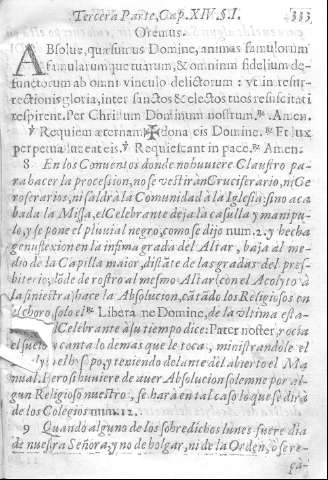 Tercera Parte, Cap. XIV. §. I. 333
Oremus.
ABsolue, quæsumus Domine, animas famulorum
famularumque tuarum, & omnium fidelium de-
functorum ab omni vinculo delictorum : vt in resur-
rectionis gloria, inter sanctos & electos tuos resuscitati
respirent. Per Christum Dominum nostrum. ℟. Amen.
℣ Requiem æternam ✠ dona eis Domine. ℟ Et lux
perpetua luceat eis. ℣ Requiescant in pace. ℟ Amen.
8 En los Conuentos donde no huuiere Claustro pa-
ra hacer la procession, no se vestiràn Cruciferario, ni Ge
roferarios, ni saldrà la Comunidad à la Iglesia: sino aca
bada la Missa, el Celebrante deja la casulla y manipu-
lo, y se pone el pluuial negro, como se dijo num. 2. y hecha
genuflexion en la infima grada del Altar, baja al me-
dio de la Capilla maior, distãte de las gradas del pres-
biterio, dõde de rostro al mesmo Altar (con el Acolyto à
la siniestra) hace la Absolucion, cãtãdo los Religiosos en
el choro, solo el ℟ Libera me Domine, de la vltima esta-
Celebrante à su tiempo dice: Pater noster, rocia
el suelo y canta lo demas que le toca, ministrandole el
y el hysopo, y teniendo delante del abierto el Ma
nual. Pero si huuiere de auer Absolucion solemne por al-
gun Religioso nuestro, se harà en tal caso lo que se dirà
de los Colegios num. 12.
9 Quando alguno de los sobredichos lunes fuere dia
de nuestra Señora, y no de holgar, ni de la Orden, ò se re-
ça-